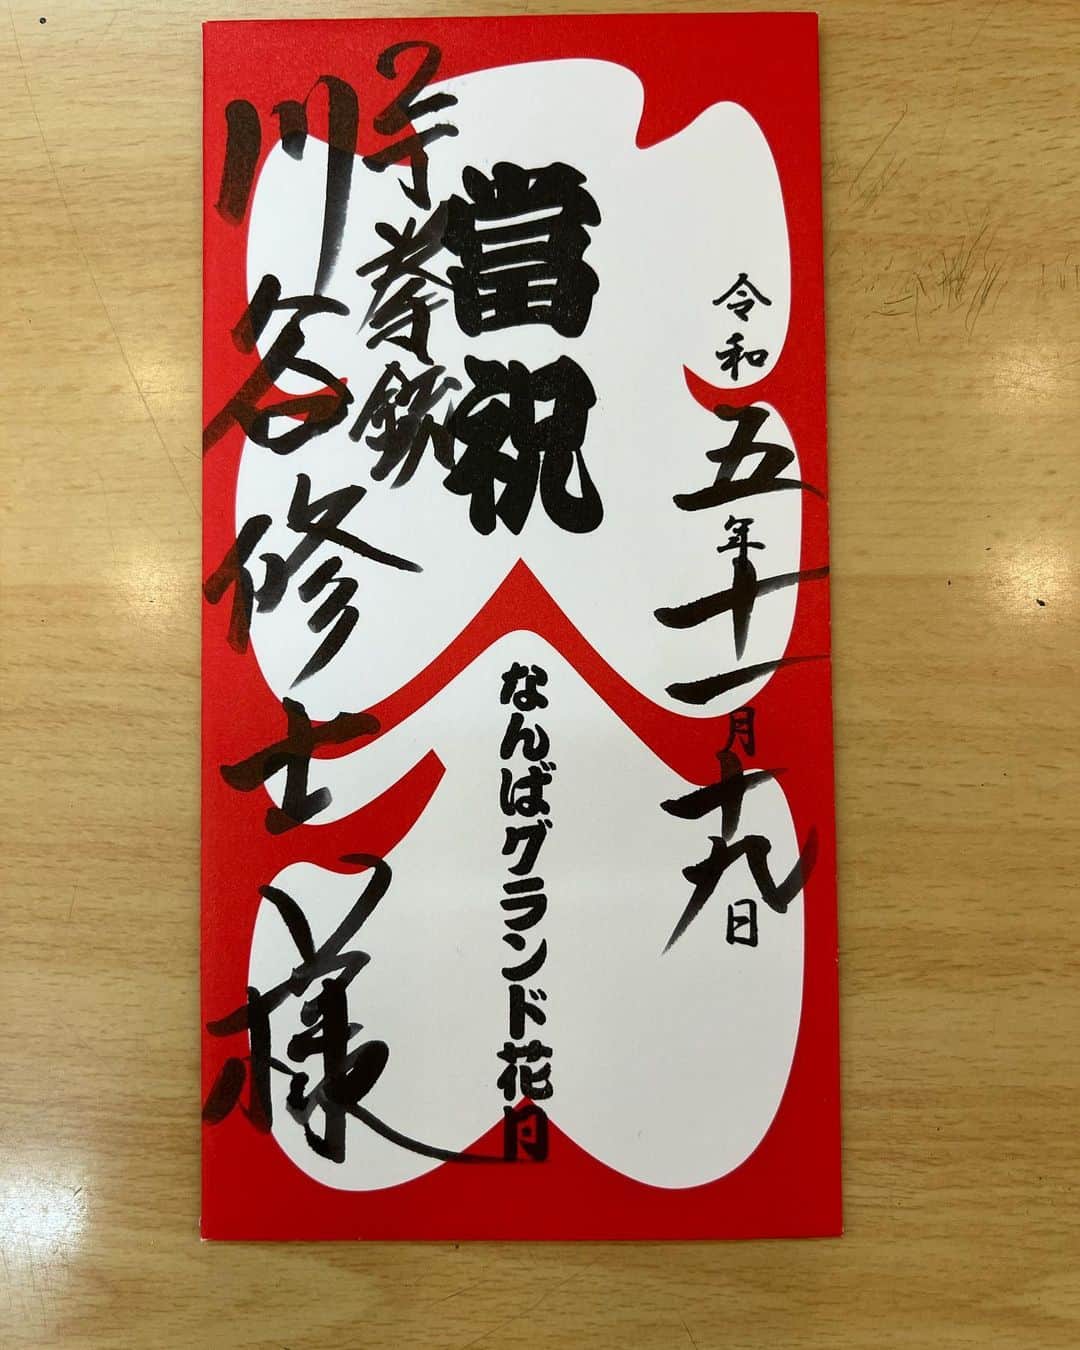 令和五年十一月十九日
當祝
なんばグランド花月
2丁拳銃
川谷修士様